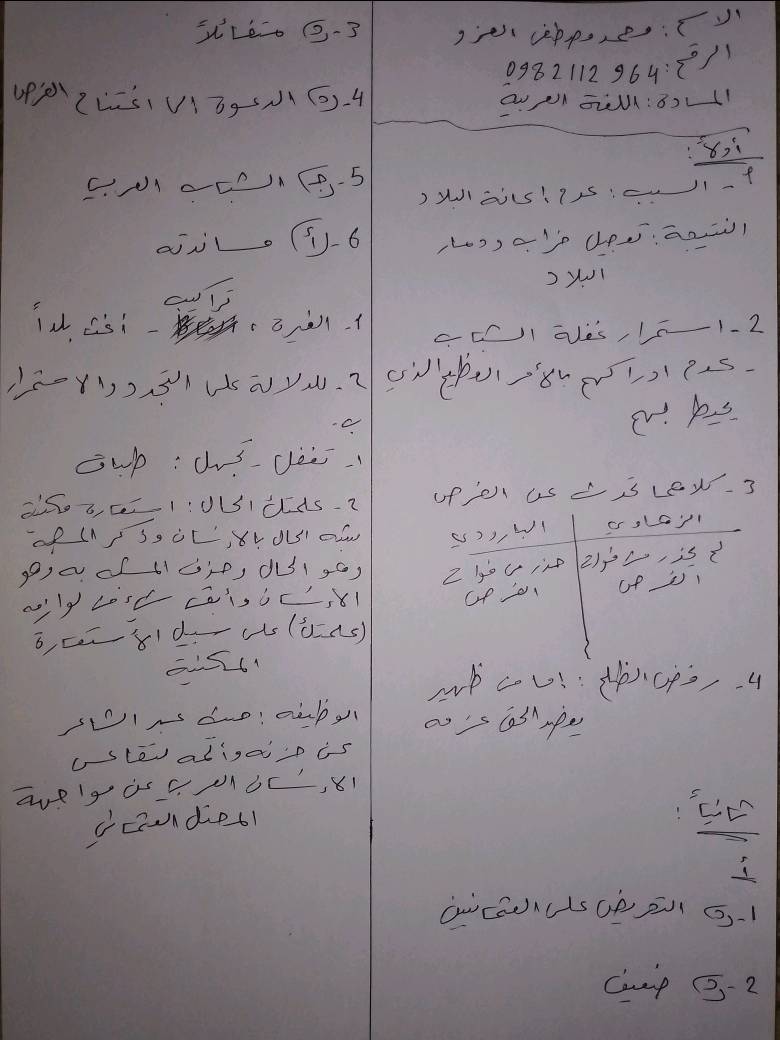 الاسم: محمد مصطفى العزو
الرقم: 0982112964
المادة: اللغة العربية
أولاً:
1- السبب: عدم إعانة البلاد
النتيجة: تعجيل خراب ودمار
البلاد
2- استمرار غفلة الشباب
- عدم ادراكهم بالأمر الفظيع الذي
يحيط بهم
3- كلاهما تحدث عن الفرص
الزهاوي | البارودي
لم يحذر من فوات | حذر من فوات
الفرص | الفرص
4- رفض الظلم: اما من ظهير
يعضد الحق عزمه
ثانياً:
أ
1- (د) التحريض على العثمانيين
2- (د) ضعيف
3- (د) متفائلاً
4- (د) الدعوة الى اغتنام الفرص
5- (ج) الشباب العربي
6- (أ) مساندته
تراكيب
1- الغيرة، - أغث بلداً
2- للدلالة على التجدد والاستمرار
ب-
1- تغفل - تجهل: طباق
2- علمتك الحال: استعارة مكنية
شبه الحال بالإنسان وذكر المشبه
وهو الحال وحذف المشبه به وهو
الإنسان وأبقى شيء من لوازمه
(علمتك) على سبيل الأستعارة
المكنية
الوظيفة: حيث عبر الشاعر
عن حزنه وألمه لتقاعس
الإنسان العربي عن مواجهة
المحتل العثماني